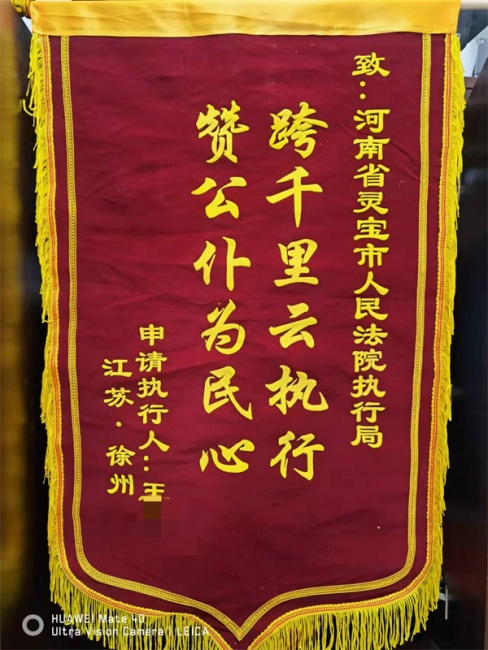 致：河南省灵宝市人民法院执行局
跨千里云执行
赞公仆为民心
申请执行人：王
江苏·徐州
HUAWEI Mate 40
Ultra Vision Camera | LEICA